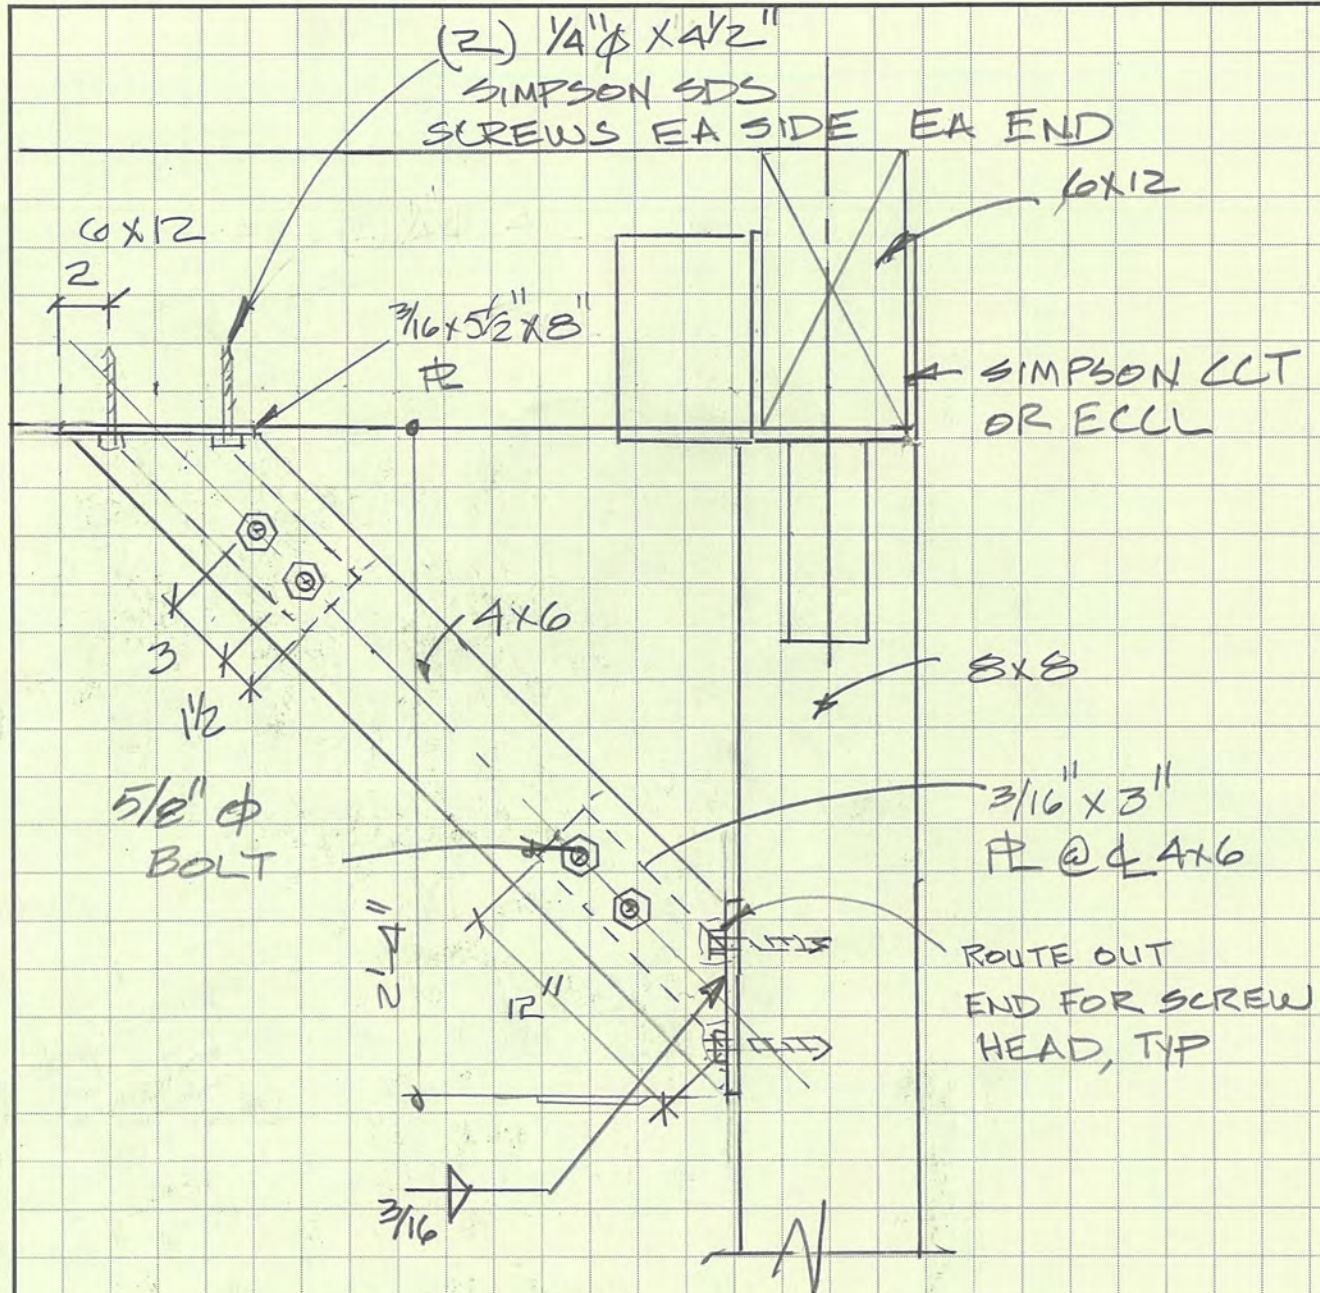 (2) 1/4"ϕ X 4 1/2"
SIMPSON SDS
SCREWS EA SIDE EA END
6X12
6X12
2
3/16 x 5 1/2" X 8"
PL
SIMPSON CCT
OR ECCL
4X6
3
1 1/2
8X8
5/8" ϕ
BOLT
3/16" X 3"
PL @ CL 4X6
2'-4"
12"
ROUTE OUT
END FOR SCREW
HEAD, TYP
3/16